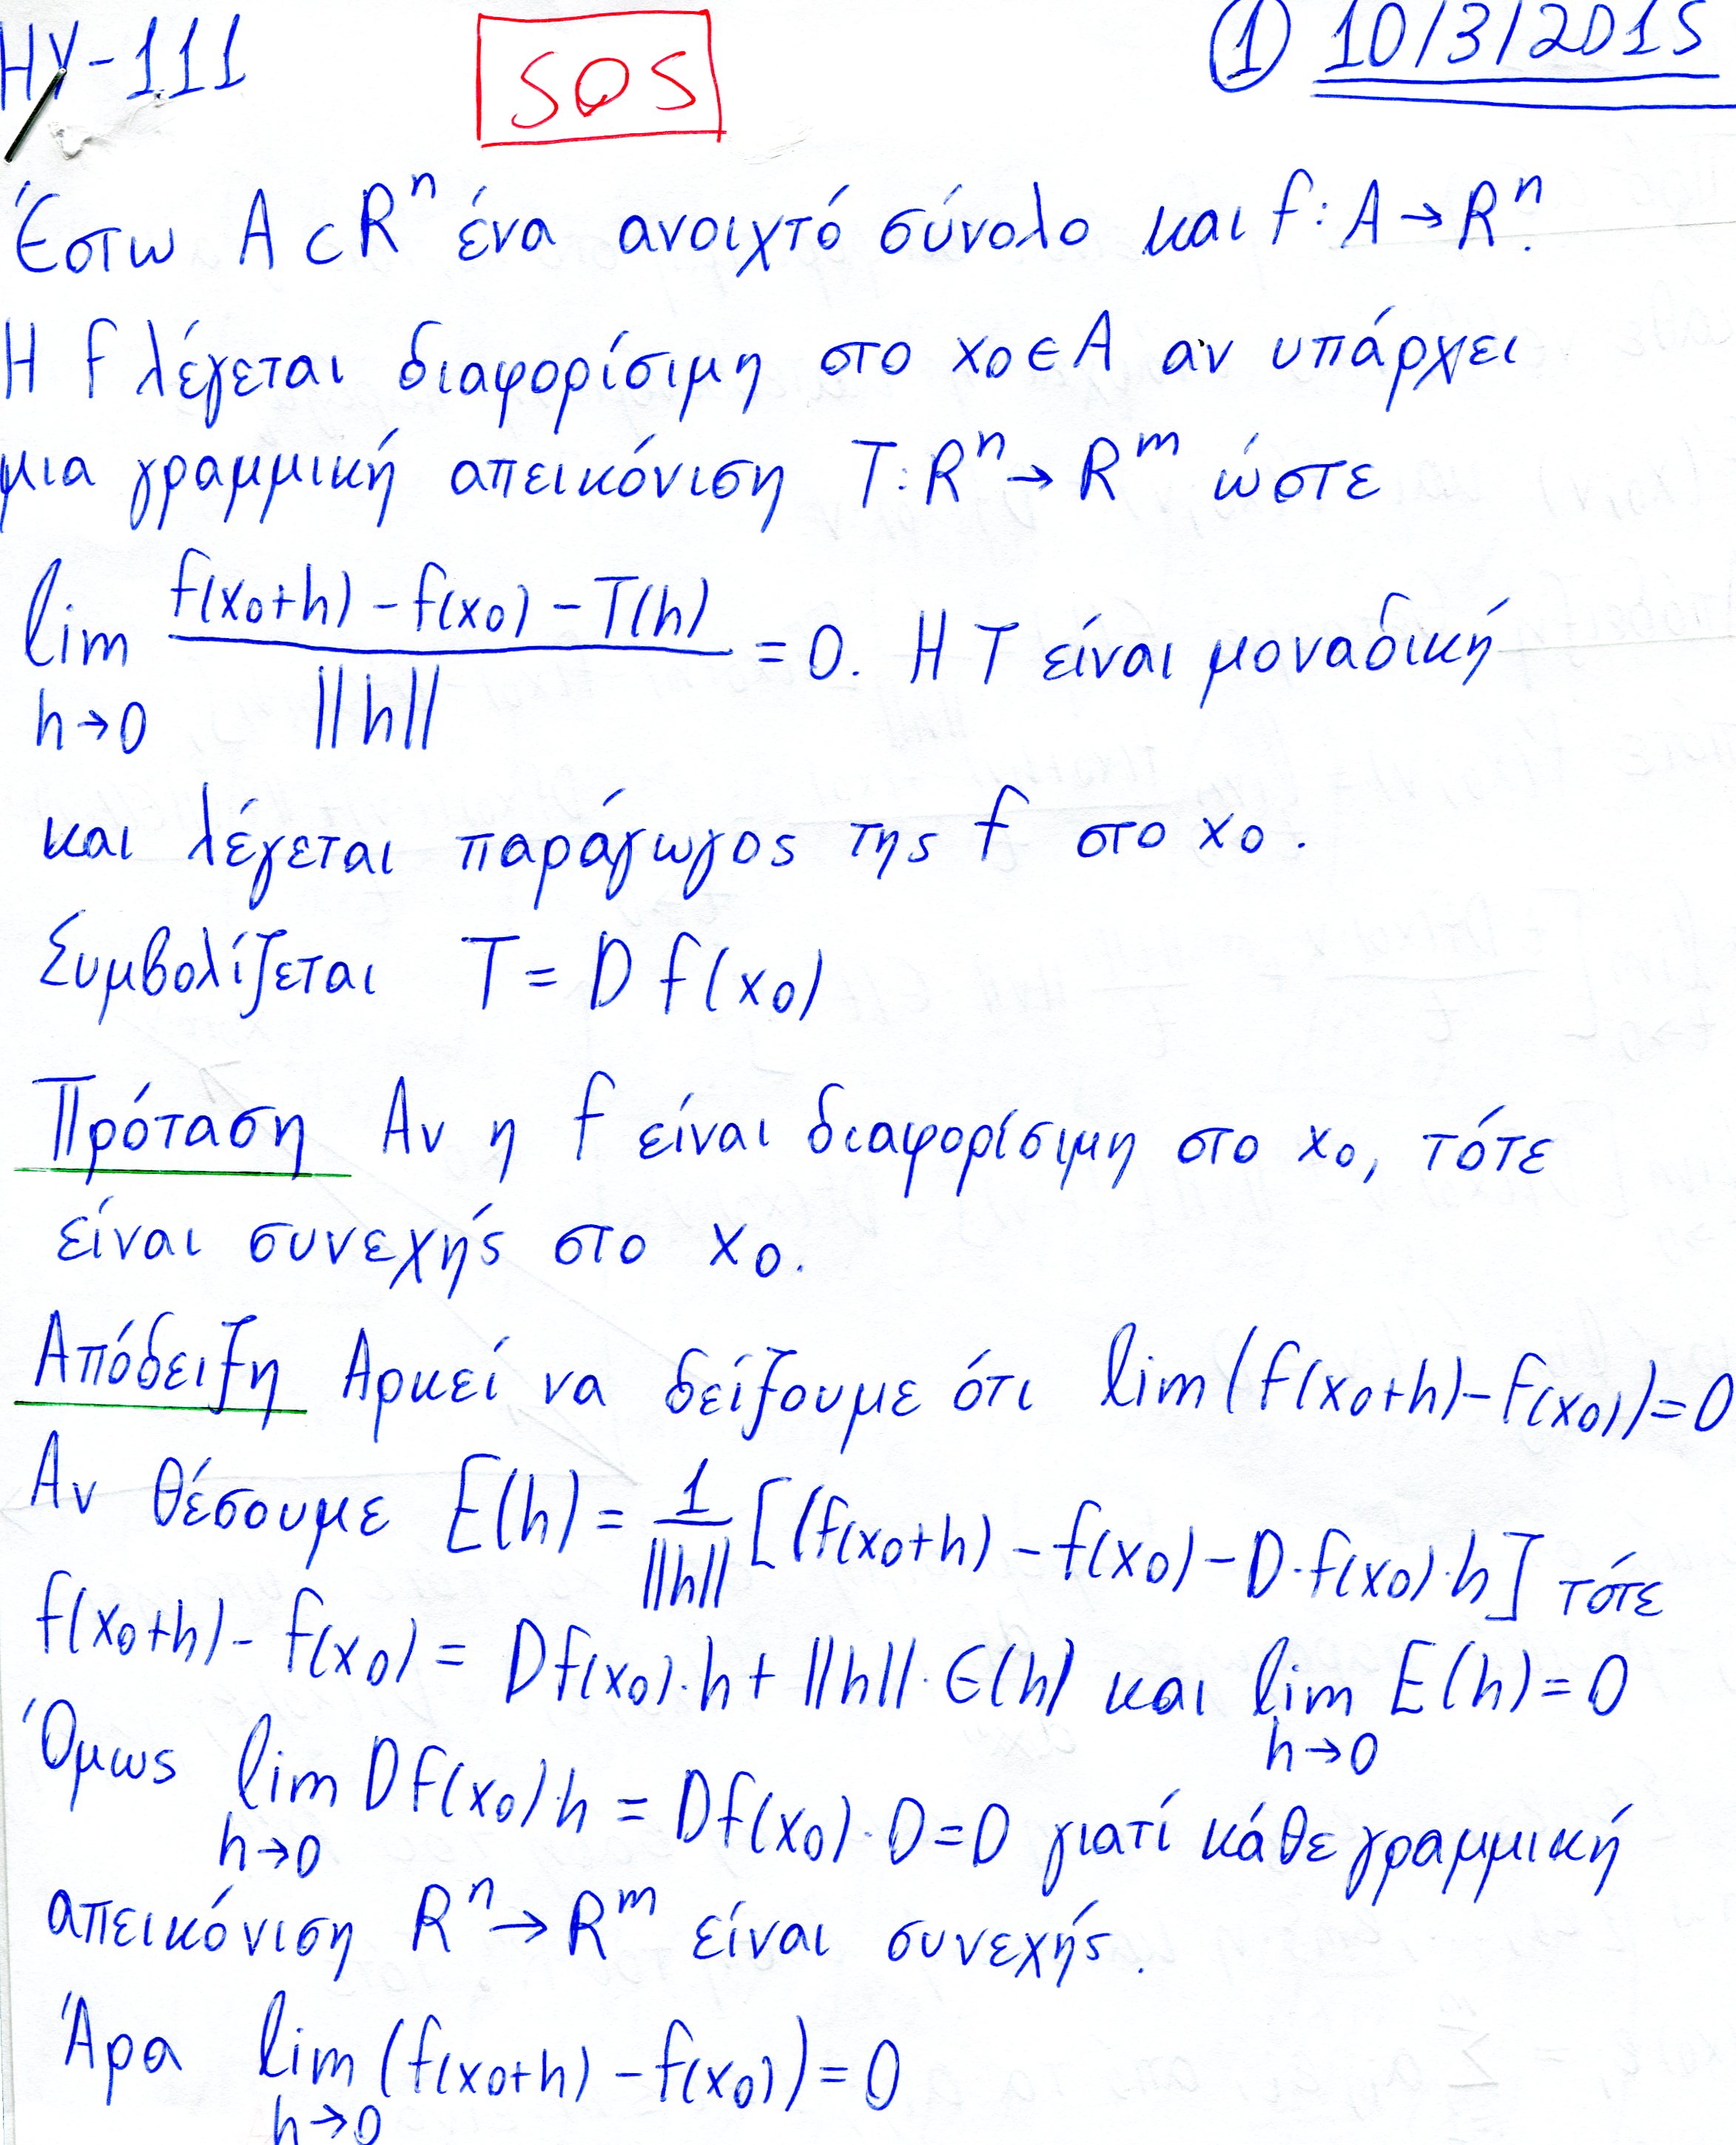 ΗΥ-111 SOS ① 10/3/2015
Έστω A ⊂ Rⁿ ένα ανοιχτό σύνολο και f: A → Rⁿ.
Η f λέγεται διαφορίσιμη στο x₀ ∈ A αν υπάρχει
μια γραμμική απεικόνιση T: Rⁿ → Rᵐ ώστε
lim h→0 (f(x₀+h) - f(x₀) - T(h)) / ||h|| = 0. Η T είναι μοναδική
και λέγεται παράγωγος της f στο x₀.
Συμβολίζεται T = D f(x₀)
Πρόταση Αν η f είναι διαφορίσιμη στο x₀, τότε
είναι συνεχής στο x₀.
Απόδειξη Αρκεί να δείξουμε ότι lim (f(x₀+h) - f(x₀)) = 0
Αν θέσουμε E(h) = 1/||h|| [(f(x₀+h) - f(x₀) - D·f(x₀)·h] τότε
f(x₀+h) - f(x₀) = Df(x₀)·h + ||h||·Є(h) και lim h→0 E(h) = 0
Όμως lim h→0 Df(x₀)·h = Df(x₀)·0 = 0 γιατί κάθε γραμμική
απεικόνιση Rⁿ → Rᵐ είναι συνεχής.
Άρα lim h→0 (f(x₀+h) - f(x₀)) = 0